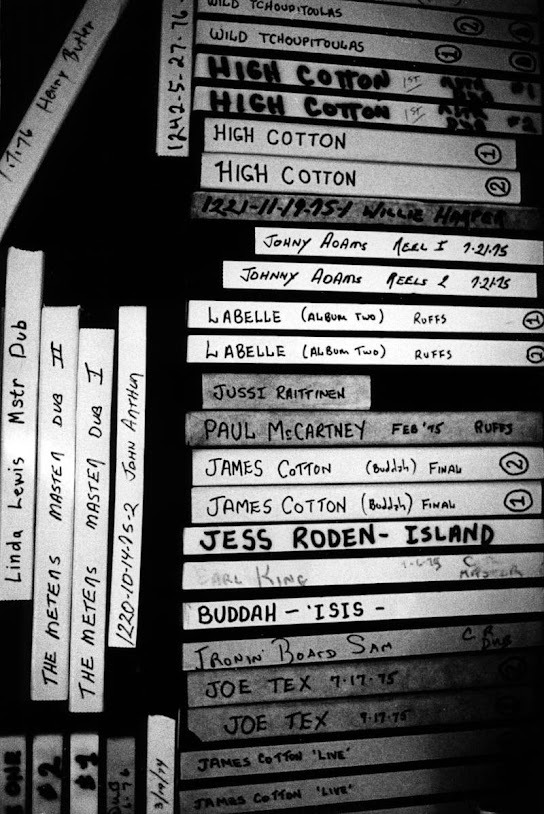 1.7.76 Henry Butler
1242-5-27-76-
WILD TCHOUPITOULAS 2
WILD TCHOUPITOULAS 1
HIGH COTTON 1ST #1
HIGH COTTON 1ST #2
HIGH COTTON 1
HIGH COTTON 2
1221-11-19-75-1 WILLIE HARPER
JOHNY ADAMS REEL I 7-21-75
JOHNNY ADAMS REELS 2 7-21-75
LABELLE (ALBUM TWO) RUFFS 1
LABELLE (ALBUM TWO) RUFFS 2
JUSSI RAITTINEN
PAUL McCARTNEY FEB '75 RUFFS
JAMES COTTON (Buddah) FINAL 2
JAMES COTTON (Buddah) FINAL 1
JESS RODEN - ISLAND
EARL KING C MASTER
BUDDAH - 'ISIS -
IRONIN' BOARD SAM C.R. DUB
JOE TEX 7-17-75
JOE TEX 7-17-75
JAMES COTTON 'LIVE'
JAMES COTTON 'LIVE'
Linda Lewis Mstr Dub
THE METERS MASTER DUB II
THE METERS MASTER DUB I
1220-10-14-75-2 JOHN ANTHUN
ONE
#2
#1
DUB
3/19/74